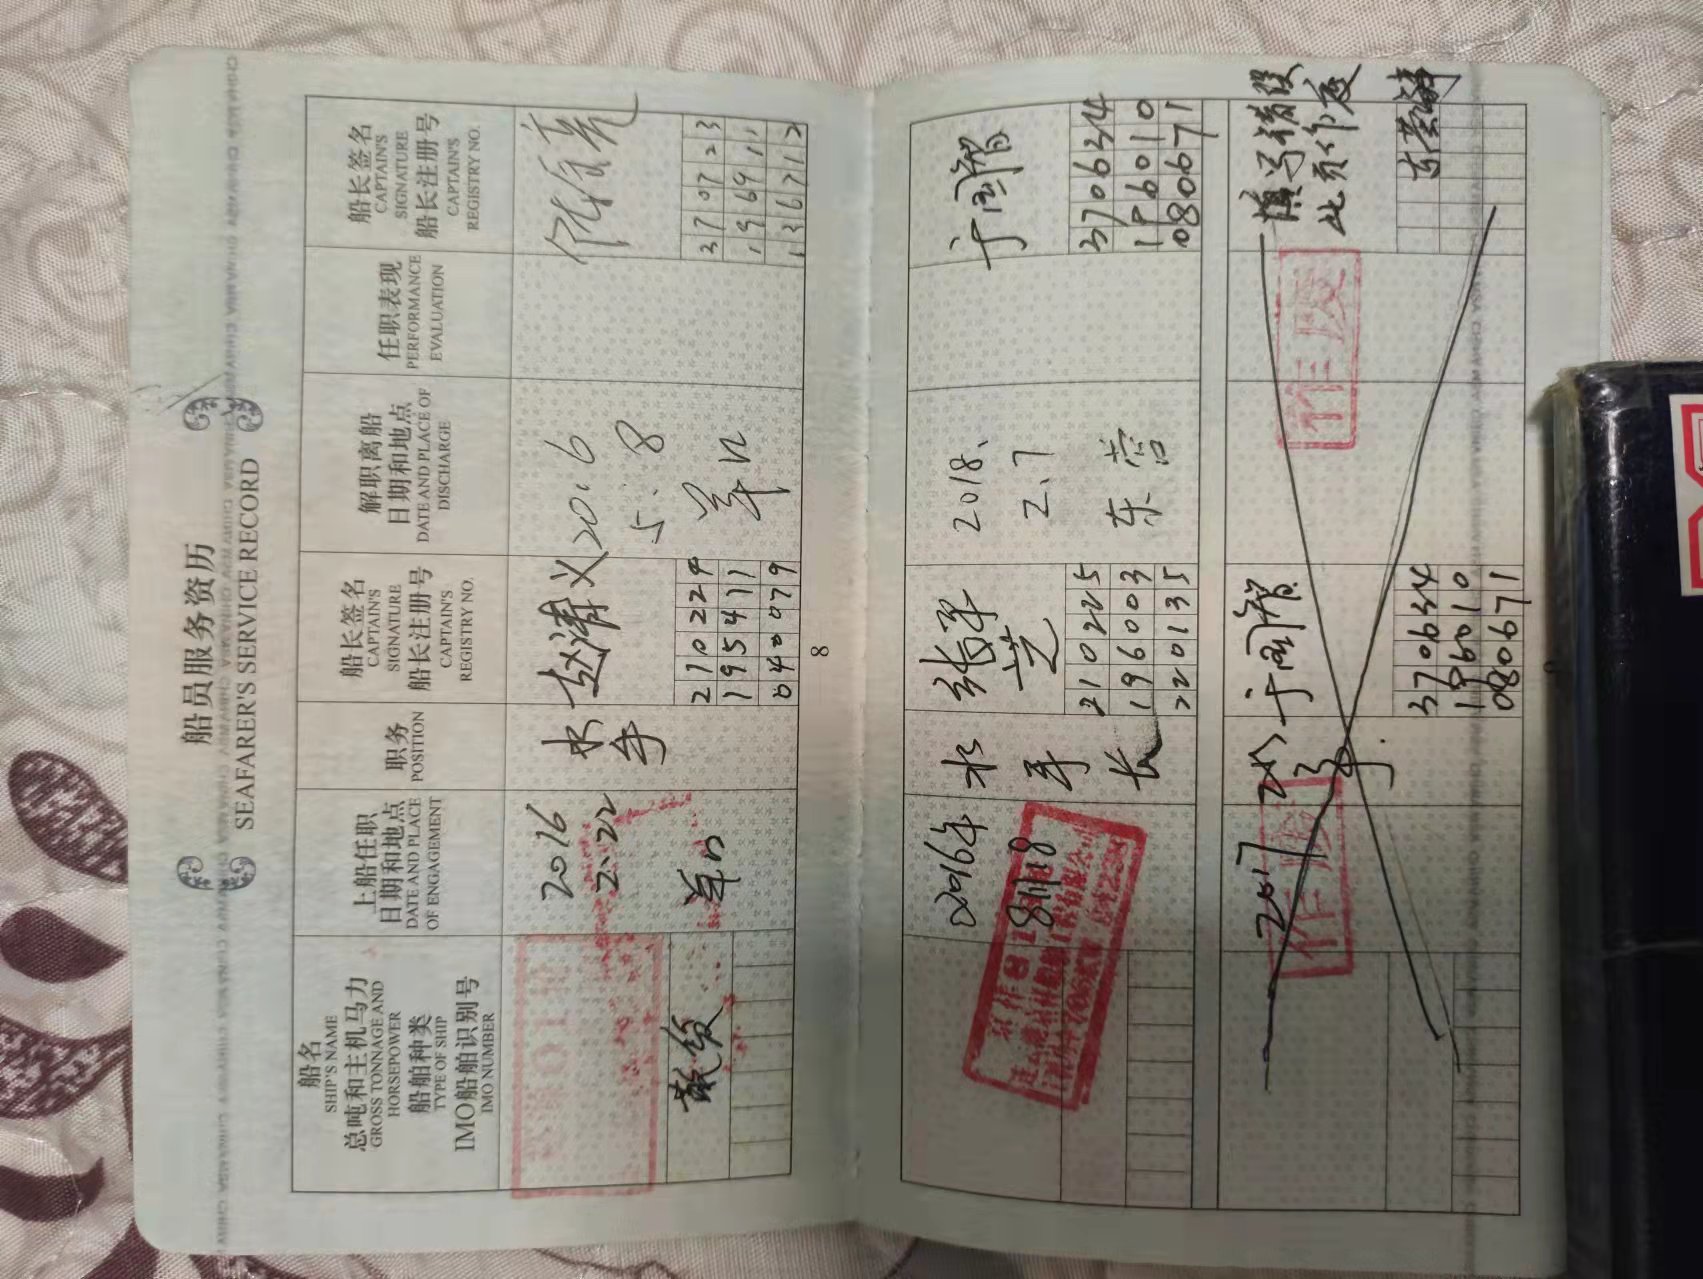 船员服务资历
SEAFARER'S SERVICE RECORD
船名
SHIP'S NAME
总吨和主机马力
GROSS TONNAGE AND
HORSEPOWER
船舶种类
TYPE OF SHIP
IMO船舶识别号
IMO NUMBER
上船任职
日期和地点
DATE AND PLACE
OF ENGAGEMENT
职务
POSITION
船长签名
CAPTAIN'S
SIGNATURE
船长注册号
CAPTAIN'S
REGISTRY NO.
解职离船
日期和地点
DATE AND PLACE OF
DISCHARGE
任职表现
PERFORMANCE
EVALUATION
船长签名
CAPTAIN'S
SIGNATURE
船长注册号
CAPTAIN'S
REGISTRY NO.
散货
2016
2.22
水
手
赵清义
2102224
195411
040079
2016
5.8
3707223
196911
136712
8
2016年
8月18
水
手
长
张军
艺
2102225
196003
220135
2018.
2.7
东营
于雨智
3706344
196010
080671
2017
作废
水
手
于雨智
3706344
196010
080671
作废
填写错误
此页作废
东营